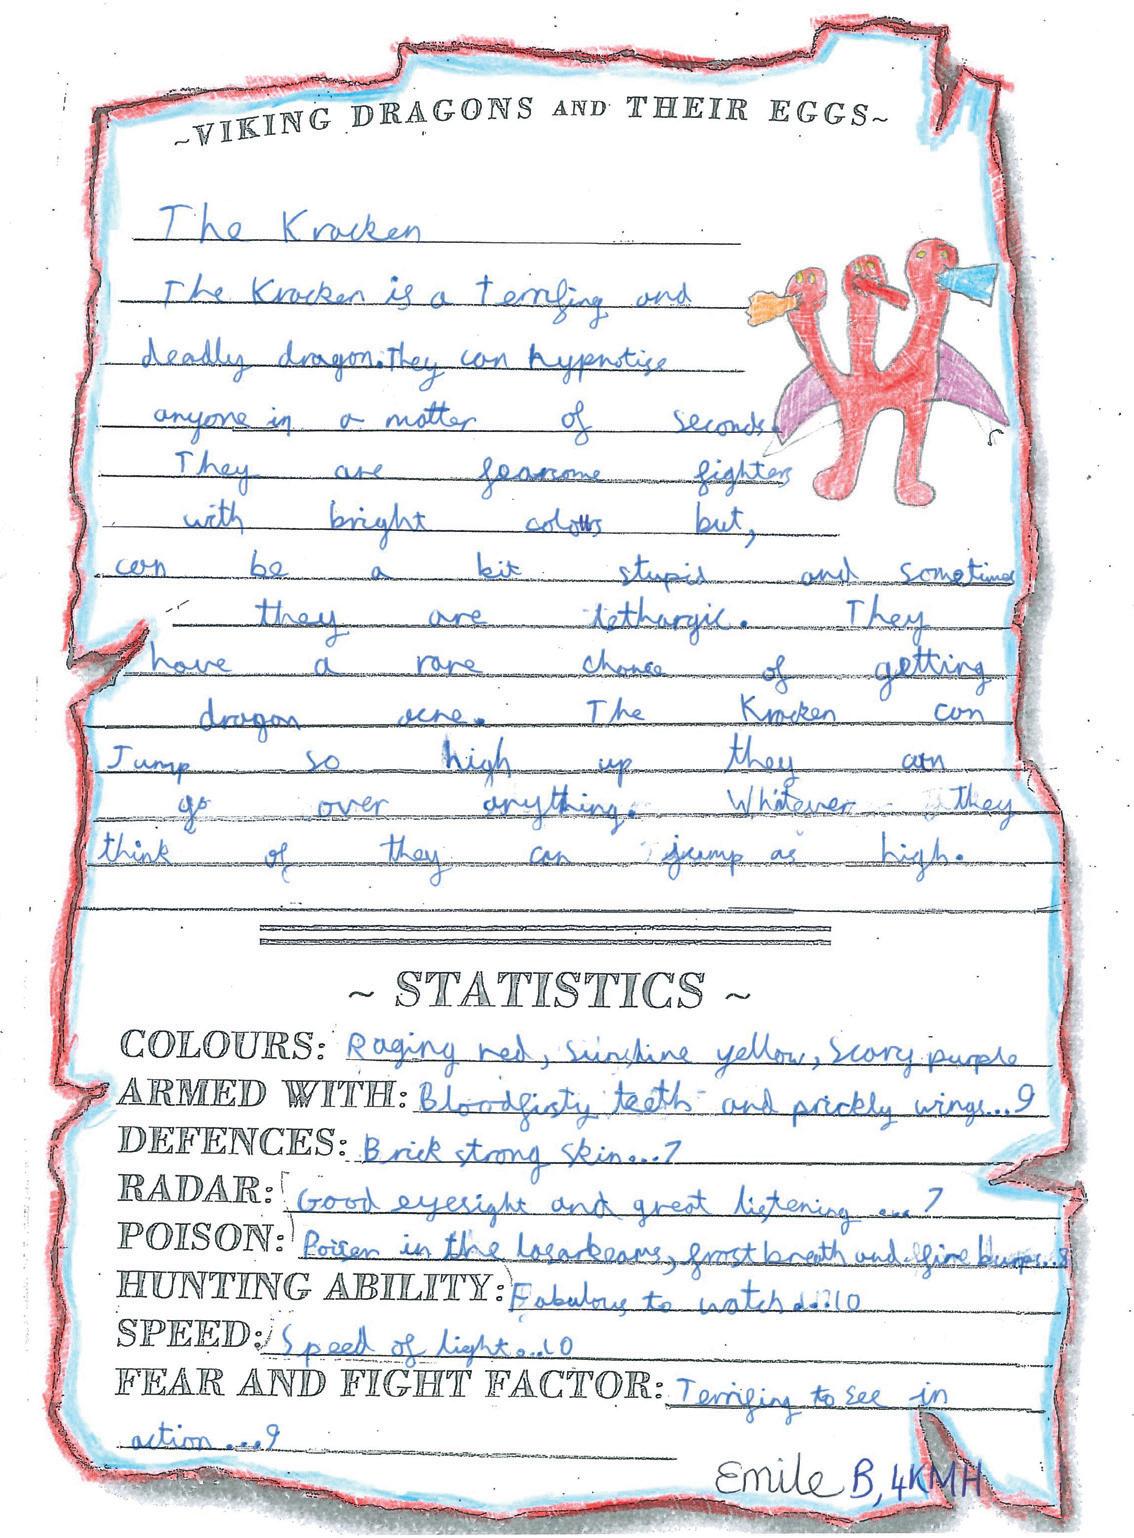 ~VIKING DRAGONS AND THEIR EGGS~
The Kracken
The Kracken is a terrfing and
deadly dragon. They can hypnotise
anyone in a matter of seconds.
They are fearsome fighters
with bright colours but,
can be a bit stupid and sometimes
they are lethargic. They
have a rare chance of getting
dragon acne. The Kracken can
Jump so high up they can
go over anything. Whatever they
think of they can jump as high.
~ STATISTICS ~
COLOURS: Raging red, Sunshine yellow, Scary purple
ARMED WITH: Bloodfirsty teeth and prickly wings...9
DEFENCES: Brick strong skin...7
RADAR: Good eyesight and great listening ...7
POISON: Poison in the lasarbeams, frost breath and fire burps...8
HUNTING ABILITY: Fabulous to watch...10
SPEED: Speed of light...10
FEAR AND FIGHT FACTOR: Terrifing to see in
action ...9
Emile B, 4KMH